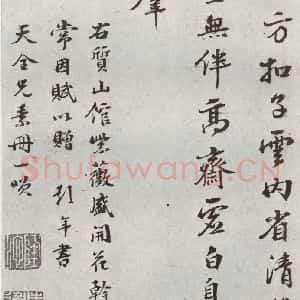 方扣子雲內省清
無伴高齋虛白自
右質山館紫薇盛開花幹
常因賦以贈 引年書
天全兄素冊一噱
Shufawang.CN